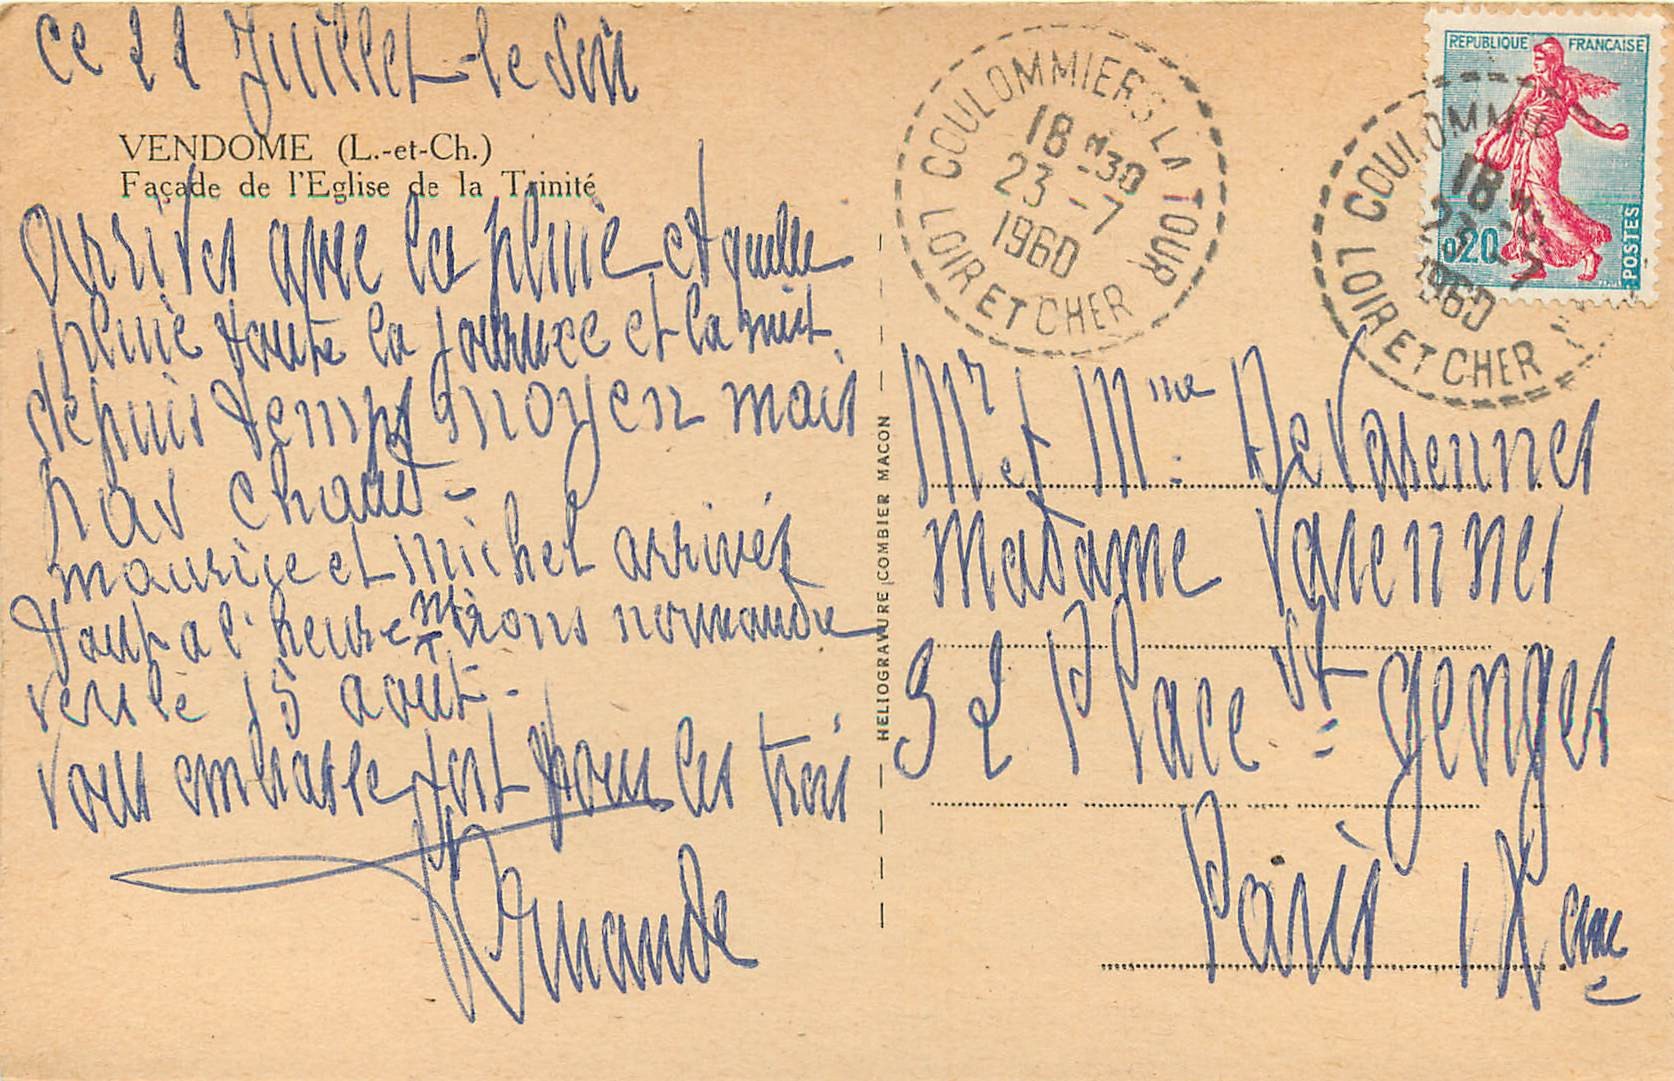 ce 22 Juillet le soir
VENDOME (L.-et-Ch.)
Façade de l'Eglise de la Trinité
arrivés avec la pluie et quelle
pluie toute la journée et la nuit
depuis temps moyen mais
pas chaud -
maurice et michel arrivés
tout a l'heure irons normandie
vers le 15 août -
vous embrasse fort tous les trois
HELIOGRAVURE COMBIER MACON
COULOMMIERS LA TOUR
18 H 30
23 - 7
1960
LOIR ET CHER
REPUBLIQUE FRANCAISE
0,20
POSTES
COULOMMI
18
23 - 7
1960
LOIR ET CHER
Mr et Mme De Varennes
Madame Varennes
32 Place St Georges
Paris IX eme